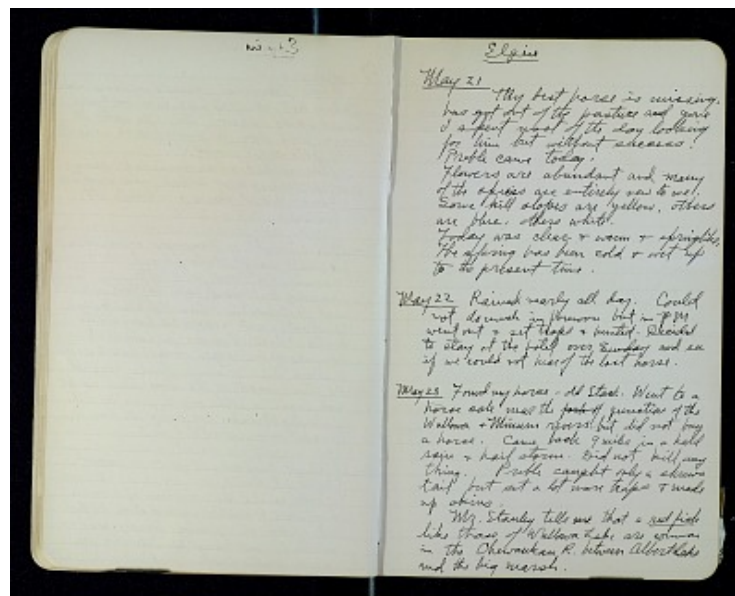 Elgin
May 21
My best horse is missing,
has got out of the pasture and gone
I spent most of the day looking
for him but without success.
Preble came today.
Flowers are abundant and many
of the species are entirely new to me.
Some hill slopes are yellow, others
are blue, others white.
Today was clear + warm + springlike,
The spring has been cold + wet up
to the present time.
May 22 Rained nearly all day. Could
not do much in forenoon but in P.M.
went out + set traps + hunted. Decided
to stay at the hotel over Sunday and see
if we could not hear of the lost horse.
May 23 Found my horse - old Stack. Went to a
horse sale near the fork of junction of the
Wallowa + Minum rivers but did not buy
a horse. Came back 9 miles in a
rain + hail storm. Did not kill any
thing. Preble caught only a
tail but set a lot more traps + made
up skins.
Mr. Stanley tells me that a red fish
like those of Wallowa Lake are common
in the Chewaukan R. between Albert Lake
and the big marsh.